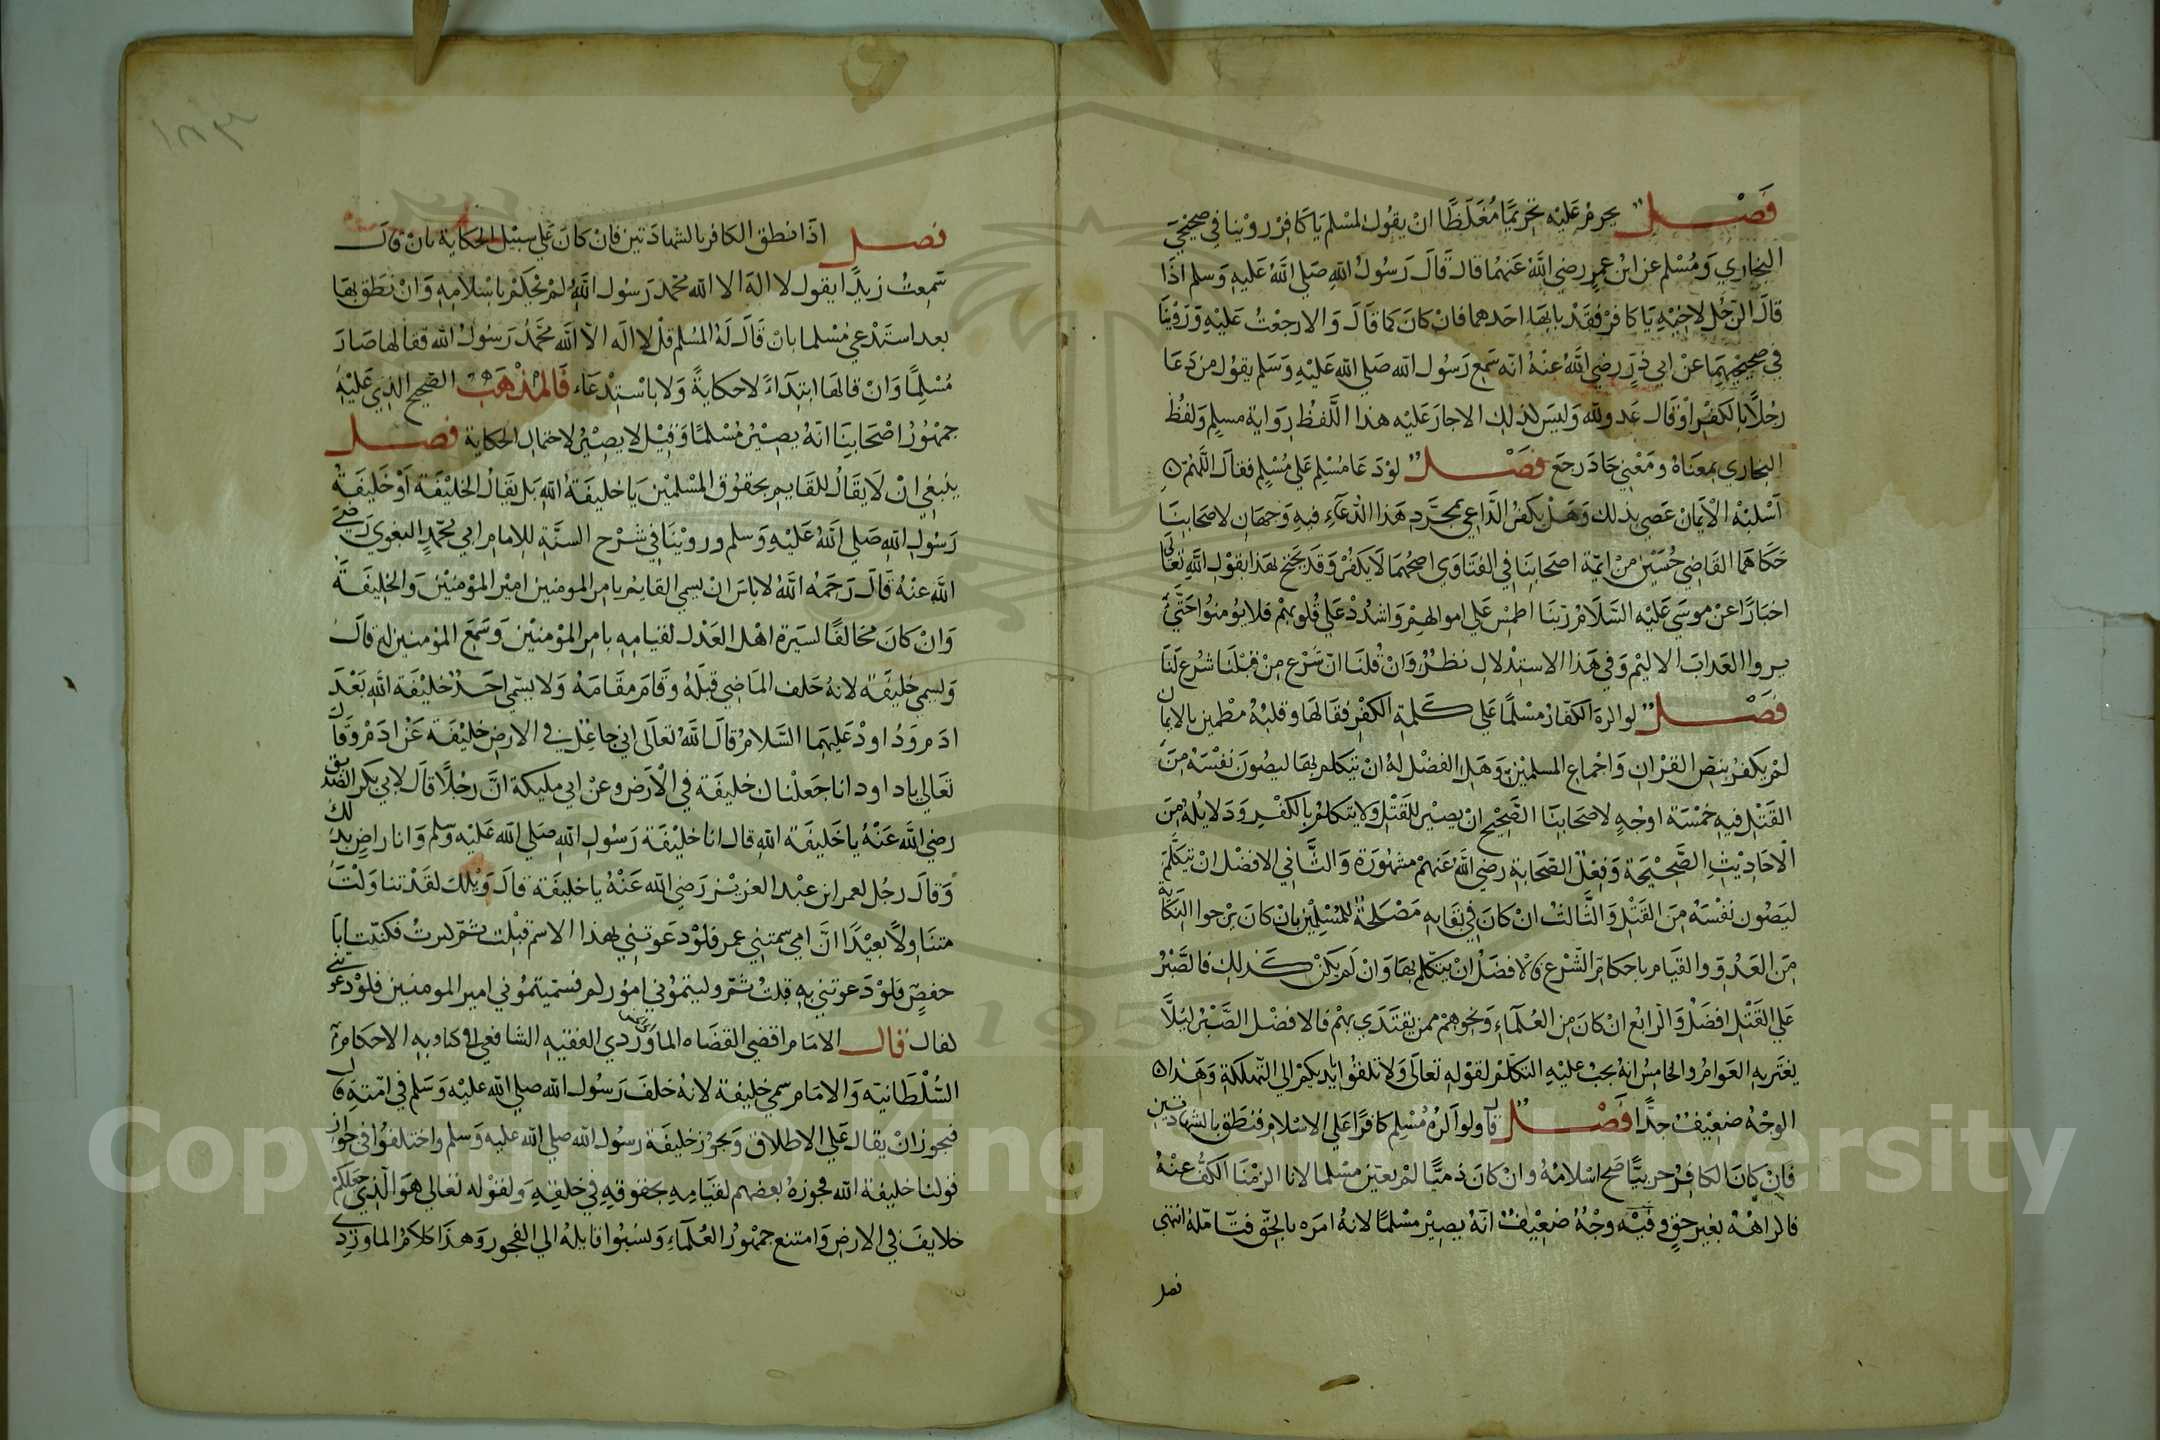 فَصْل يحرم عَليْه تحَريمًا مُغَلَّظًا انْ يقوُل لمسْلم يَا كَافِرْ روْينا في صحِيْحَي
البخاري وَمُسْلم عن ابْن عمر رضي اللهُ عَنهمُا قالَ قَالَ رَسُولُ اللهِ صَلي اللهُ عَليهِ وَسلم اذا
قالَ الرّجُل لاخِيْهِ يَا كافرُ فقَدْ باء بهَا احَدهما فانْ كانَ كما قَالَ وَالا رجعتْ عَليْهِ وَرَوْيْنَا
في صحيحيْهِمَا عنْ ابي ذرٍ رضي اللهُ عنْهُ انه سَمع رَسُولَ الله صَلي اللهُ عَليْهِ وَسَلم يقوُل من دَعَا
رجُلًا بالكفْرِ اوْ قالَ عَدوّ لله وَليسَ لذلك الا حارَ عَليْه هذا اللَّفظُ رِوَاية مسلم وَلفظُ
البخاري بمعنَاهُ ومَعْني حَارَ رجعَ فصْل لوْ دَعَا مسُلم عَلي مُسْلِم فقالَ اللَّهمّ
اسْلبْهُ الْايمانْ عَصى بذلك وَهَلْ يكفرُ الدَّاعي بمجَّردِ هَذا الدّعَاءِ فيهِ وَجهَانِ لاصحَابنِا
حَكاهما القَاضِي حُسَيْن منْ ايمّة اصحَابنِا في الفتَاوي اصحهُّما لَا يكفرُ وَقد يحَتج لهَذا بقوْلِ اللهِ تعَالي
اخبَارًا عنْ موسَى عَليْه السَّلَامُ رَبنَا اطمسْ عَلي اموالهمْ وَاشدُدْ عَلي قلُوبهمْ فلا يؤُمنوا حَتّى
يروا العَذابَ الاليْم وَفي هَذا الاستِدْلال نظرٌ وَانْ قلنَا انّ شَرْع منْ قبْلنَا شرْع لنَا
فَصْل لو اكرهَ الكفّارُ مسْلمًا عَلي كلمة الكفرْ فقَالهَا وقلبُهْ مطْمين بالايمان
لمْ يكفرْ بنصّ القرْانِ وَاجْماع المسلمينْ وَهَلِ الفضْل لهُ انْ يتكلم بها ليصُونَ نفْسَهُ منَ
القَتْلِ فيهِ خمْسَة اوْجُهٍ لاصحَابنَا الصَّحِيْح انْ يصبر للقَتْلِ وَلا يتَكلمُ بالكفْرِ وَدَلايلهُ منَ
الْاحَادِيْثِ الصَّحِيْحَة وَفعْل الصّحَابة رضي اللهُ عَنهمْ مشهوُرَة وَالثَّاني الافضل انْ يتَكلَّم
ليصُون نفْسَهُ منَ القَتْلِ وَالثَّالثُ انْ كانَ في بَقايهِ مَصْلحَةٌ للمُسْلمِيْنَ بانْ كانَ يَرْجوا النّكاية
منَ العَدُوّ والقيَام باحكامِ الشَّرْع فالافضَلُ انْ يتَكلم بهَا وَانْ لَم يكنْ كَذلك فالصَّبْرُ
عَلي القَتْلِ افضَلُ وَالرابعُ انْ كانَ منَ العُلمَاءِ وَنحوهمْ ممنْ يقتَدَي بهمْ فالافضْل الصَّبْرُ ليَلَّا
يغتَرَّ به العَوامُ وَالخامسُ انهُ يجبْ عليهِ التكلّمْ لقوْلهِ تعَالَى وَلا تلقوُا بأيديكمْ الي التّهلكَةِ وَهَذا
الوجْهُ ضعِيْفٌ جدًّا فَصْل ولو اكرهَ مُسْلم كافرًا عَلي الاسْلام فنطَق بالشهادَتين
فانْ كانَ الكافرُ حربيًّا صَح اسْلامُهُ وانْ كان ذميًّا لمْ يصِرْ مسْلما لانا التزمْنَا الكفّ عنْهُ
فاكراهُهُ بغيْر حقٍ وفيْهِ وجْهٌ ضعِيْفٌ انّهُ يصِيْرُ مسْلمًا لانهُ امَره بالحقّ فتَامّلهُ انتهى
فصل
فصل اذَا نطق الكافر بالشهادَتين فانْ كانَ عَلي سبيْل الحكاية بانْ قالَ
سَمعتُ زيدًا يقول لا الهَ الا اللهُ محمّد رَسُول اللهُ لمْ نحكمْ باسْلامهِ وَانْ نطَق بهَا
بعد استدْعي مُسْلما بانْ قَالَ لهُ المُسْلم قلْ لا الَه الا اللهَ محَمّدٌ رَسُولُ الله فقالها صَارَ
مُسْلمًا وَانْ قالهَا ابتِدَاءً لا حكايةً وَلا باسْتِدْعَاء فَالمَذْهَبْ الصَّحيحُ الذِي عَليْهِ
جمهْوُر اصْحَابنِا انهُ يصِيرُ مُسْلمًا وَقيْل لا يصِيْرُ لاحتمال الحكايةِ فصل
ينبغي انْ لَا يقَالُ للقَايم بحقوُق المسْلمِين يَا خليفَةُ الله بَل يقَال الخليْفَة اوْ خَليفَةُ
رَسُولِ اللهِ صَلي اللهُ عَليْهِ وَسلم وروَيْنَا في شَرْح السنَّةِ للامامِ ابي محمّدٍ البَغوي رَضيَ
اللهُ عنْهُ قَالَ رَحَمُه اللهُ لا باسَ انْ يسمي القايم بامر المومنين امِيْر الموْمنيْن وَالخليفَةَ
وَانْ كانَ مخالفًا لسيرَة اهْل العَدْل لقيامِهِ بامِر الموْمنيْن وَسَمعَ الموُمنينِ له قالَ
وَيسمي خليفَة لانهُ خَلف الماضي قبلهُ وَقَامَ مقَامَهُ وَلا يسّمي احَدٌ خليْفَة اللهِ بَعْدَ
ادَم وَدَاودْ عَليْهمَا السَّلامُ قالَ اللهُ تعَالَى اني جاعِلٌ في الارْضِ خليْفَة عَنْ ادَمْ وَقَالَ
تعَالي يا داود انا جَعلْناك خليفَة في الْارَض وعنْ ابي مليكة انَّ رجُلًا قالَ لابي بكر الصّدِيق
رضي اللهُ عَنْهُ يا خَليفَة اللهِ قالَ انا خليْفَة رَسُولِ اللهِ صلي الله عَليْه وسّلم وَانا راضٍ بذلك
وَقالَ رجُل لعمر ابن عبْد العزيْز رَضي الله عَنْهُ يا خَليفَة الله قالَ وَيْلكَ لقَدْ تنا وَلْتَ
متنَاولًا بعيْدًا انَّ امّي سمتْني عمر فلوْ دَعوتني بهذا الاسم قبلت ثمّ كبرتُ فكنيّت ابَا
حفصٍ فَلَوْ دَعوتني بهِ قبلتُ ثمّ وليتموُني امُوركم فسمّيتموُني امير المومنين فلوْ دعوْتني
قال الامام اقضي القضَاه الماوَرْدي الفقيه الشافعي في كتابه الاحكام
السُّلْطَانيّه وَالامَام سمي خليفة لانهُ خلفَ رَسُولَ الله صلي الله عليْهِ وَسَلم في امّتِهِ قالَ
فيجوزُ انْ يقال عَلي الاطلاق وَيجوزُ خليفَة رَسُول الله صلي الله عليه وَسلم واختلفوُا في جوازِ
قولنا خليفَة الله فجوزهُ بعضهم لقيَامِه بحقوقهِ في خلقهِ وَلقوْله تعَالي هوَ الّذِي جَعَلَكمْ
خلايفَ في الارض وَامتنع جمْهوُر العُلمَاءِ وَنسَبُوا قايلهُ الي الفجور وَهَذا كلامُ الماوَرْدِي